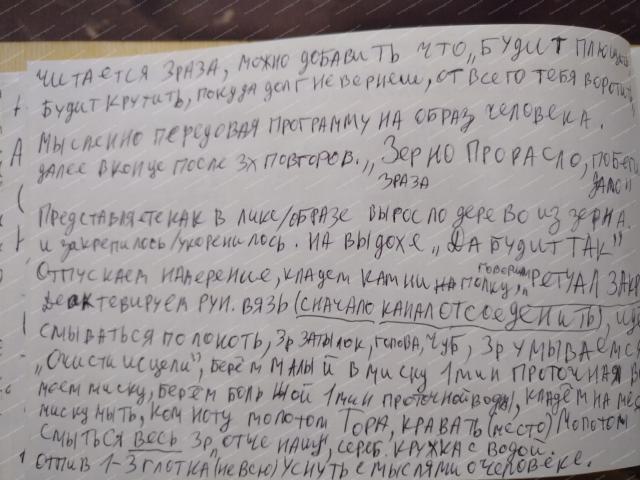 читается 3 раза, можно добавить что "будит плющить
будит крутить, покуда долг не вернеш, от всего тебя воротить
Мысленно передовая программу на образ человека.
далее в конце после 3х повторов. "Зерно проросло, побег
3 раза дало"
Представляете как в лике/образе выросло дерево из зерна.
и закрепилось/укоренилось. На выдохе "Да будит так"
отпускаем намерение, кладем камни на полку, говорим "Ретуал закр
Деактевируем рун. вязь (сначало канал отсоеденить), ид
смываться по локоть, 3р затылок, голова, чуб, 3р умываемся
"Очисти исцели", берём малый в миску 1 мин проточная в
моем миску, берём большой 1 мин проточной воды, кладём на мес
миску мыть, комноту молотом Тора, кравать (место) молотом
смыться весь 3р "отче наш", сереб. кружка с водой.
отпив 1-3 глотка (не всю) уснуть с мыслями о человеке.